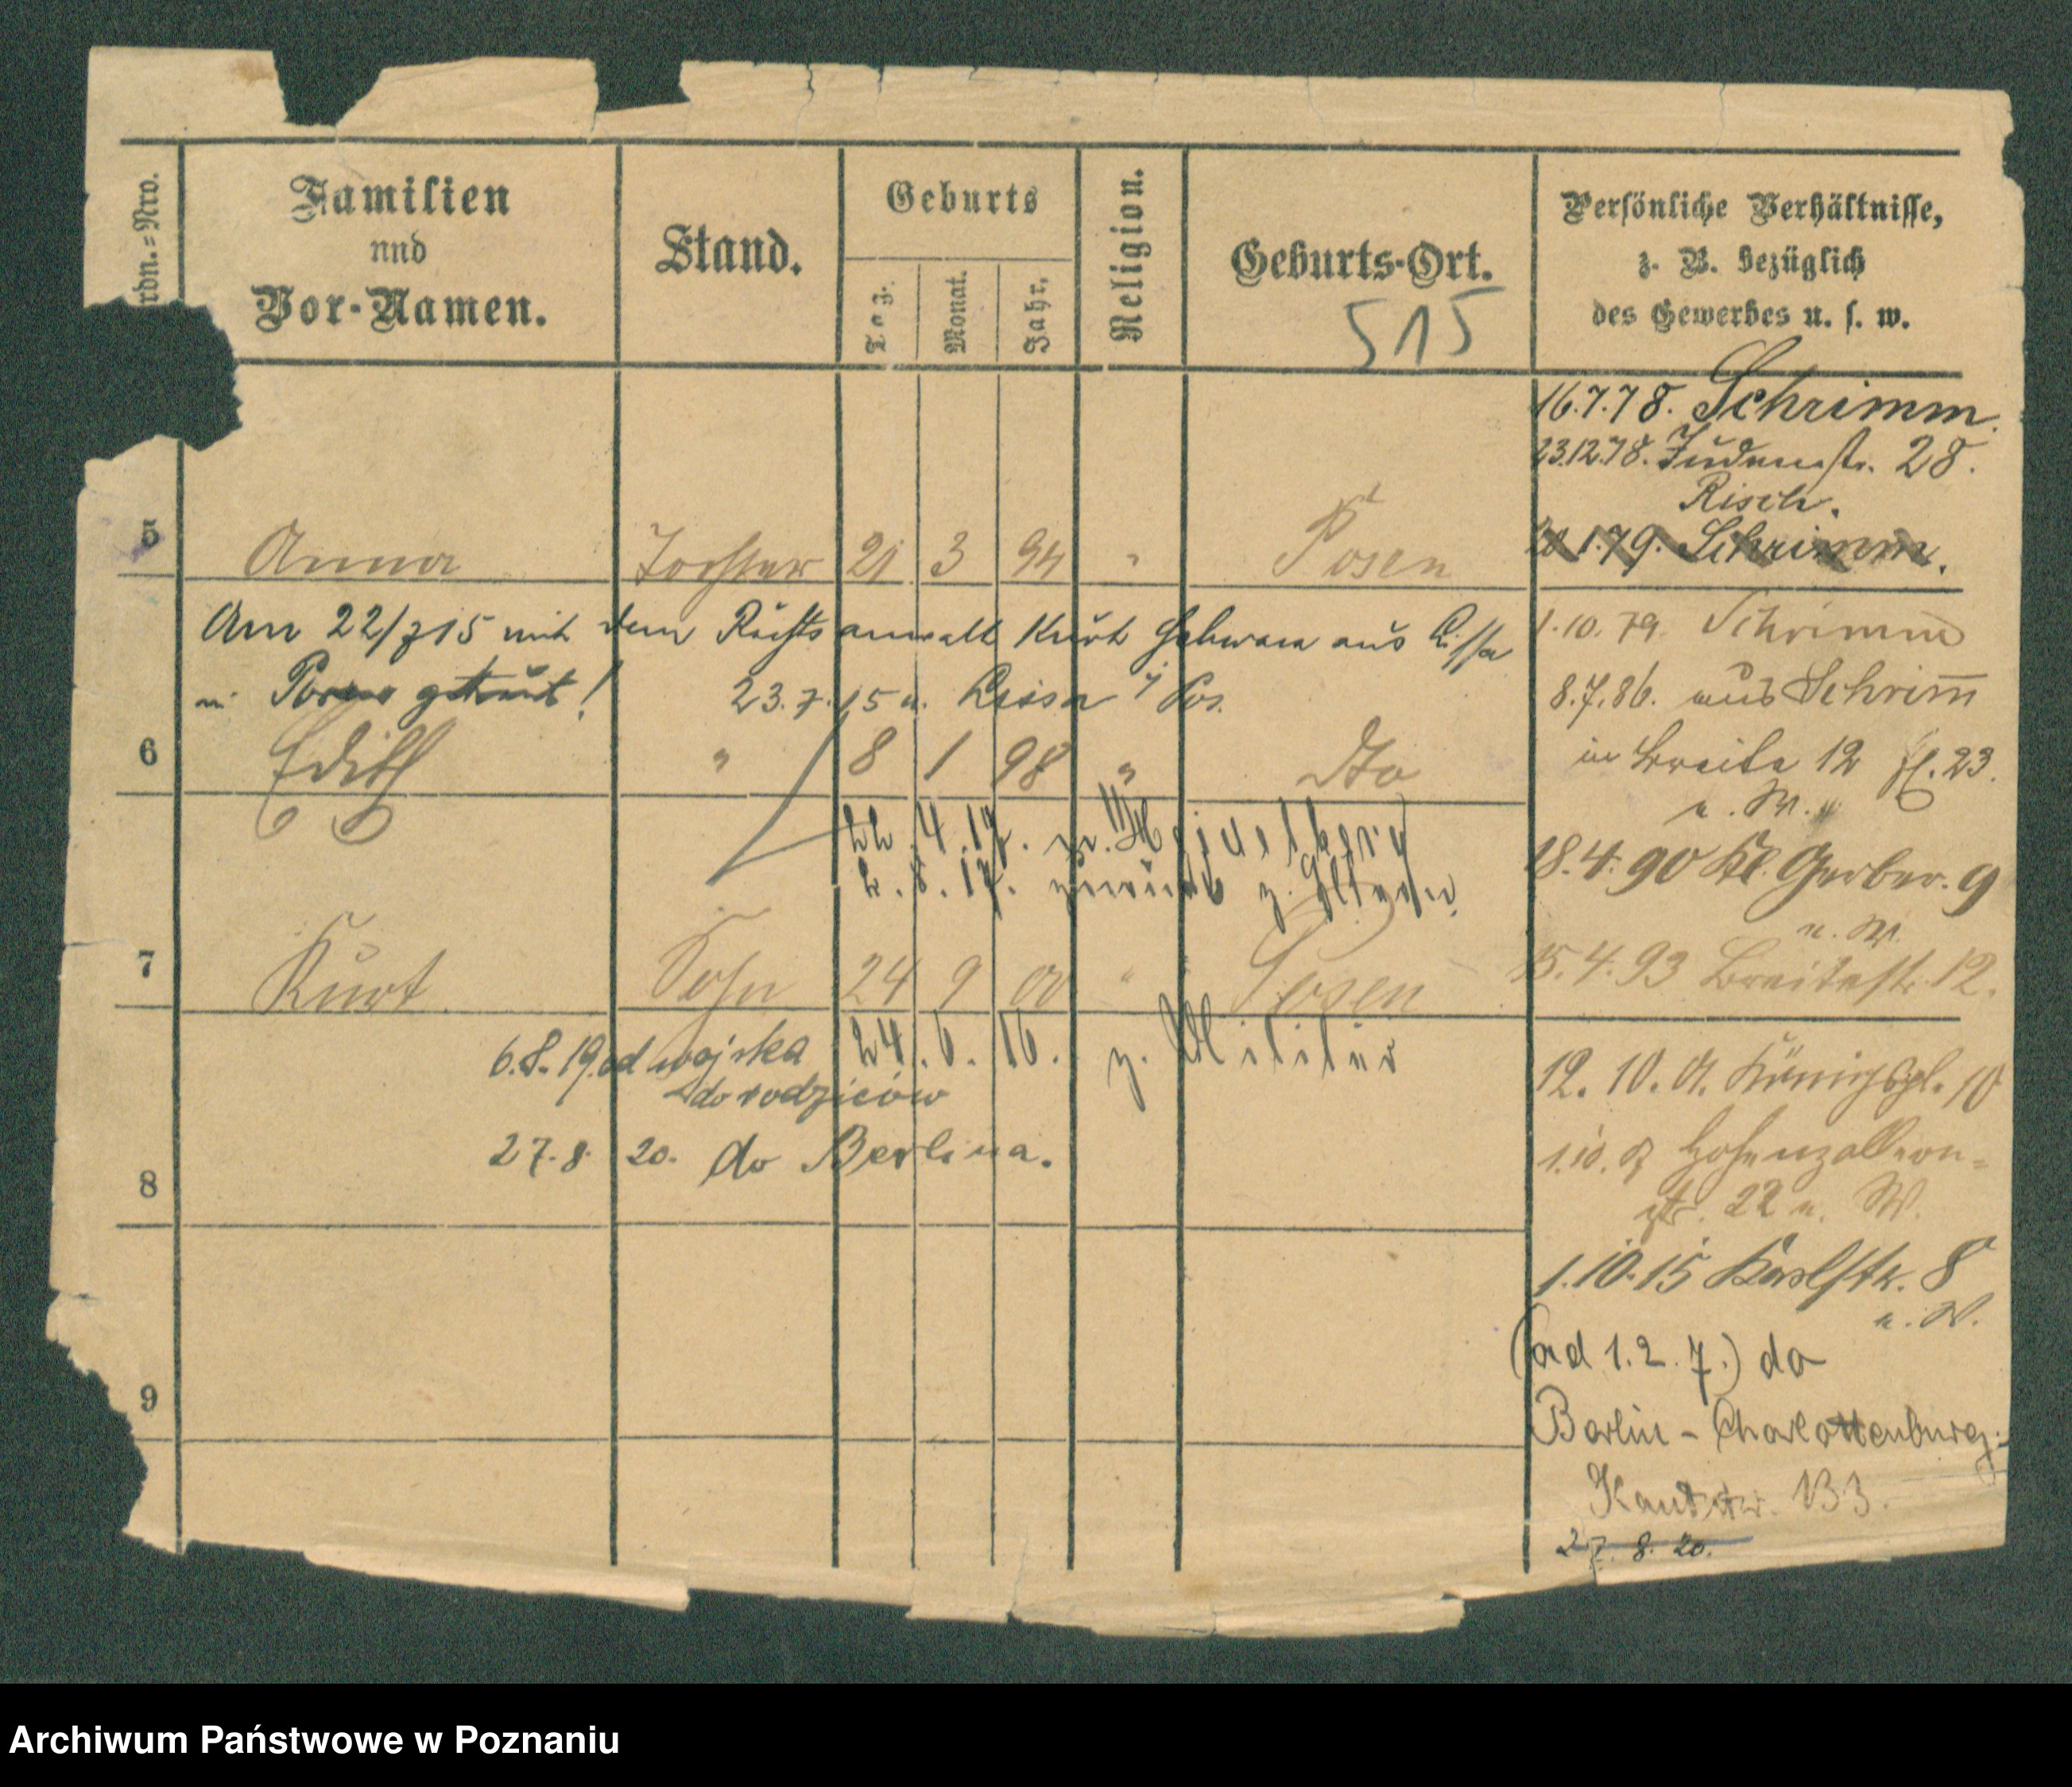 rdn.=Nro.
Familien
und
Vor-Namen.
Stand.
Geburts
Tag.
Monat.
Jahr.
Religion.
Geburts-Ort.
515
Persönliche Verhältnisse,
z. B. bezüglich
des Gewerbes u. s. w.
16.7.78. Schrimm.
23.12.78. Judenstr. 28.
Risch.
20.1.79. Schrimm.
5 Anna Tochter 21 3 94 " Posen
Am 22/7 15 mit dem Rechtsanwalt Kurt aus Lissa
in Posen getraut!
23.7.15 n. Lissa i/Pos.
1.10.79. Schrimm
8.7.86. aus Schrim̅
in Breite 12 23.
u. W.
6 Edith " 8 1 98 " Dto
22.4.17. n. Heidelberg
2.8.17. zurück z. Eltern.
18.4.90 Kl. Gerber. 9
u. W.
15.4.93 Breitestr. 12.
7 Kurt Sohn 24 9 00 " Posen
24.6.16. z. Militär
6.8.19. od wojska
do rodziców
27.8.20. do Berlina.
12.10.01. Königspl. 10
1.10. Hohenzollern-
str. 22 u. W.
8
1.10.15 Karlstr. 8
u. W.
(ad 1.2.7.) do
Berlin - Charlottenburg:
Kantstr. 133.
27.8.20.
9
Archiwum Państwowe w Poznaniu